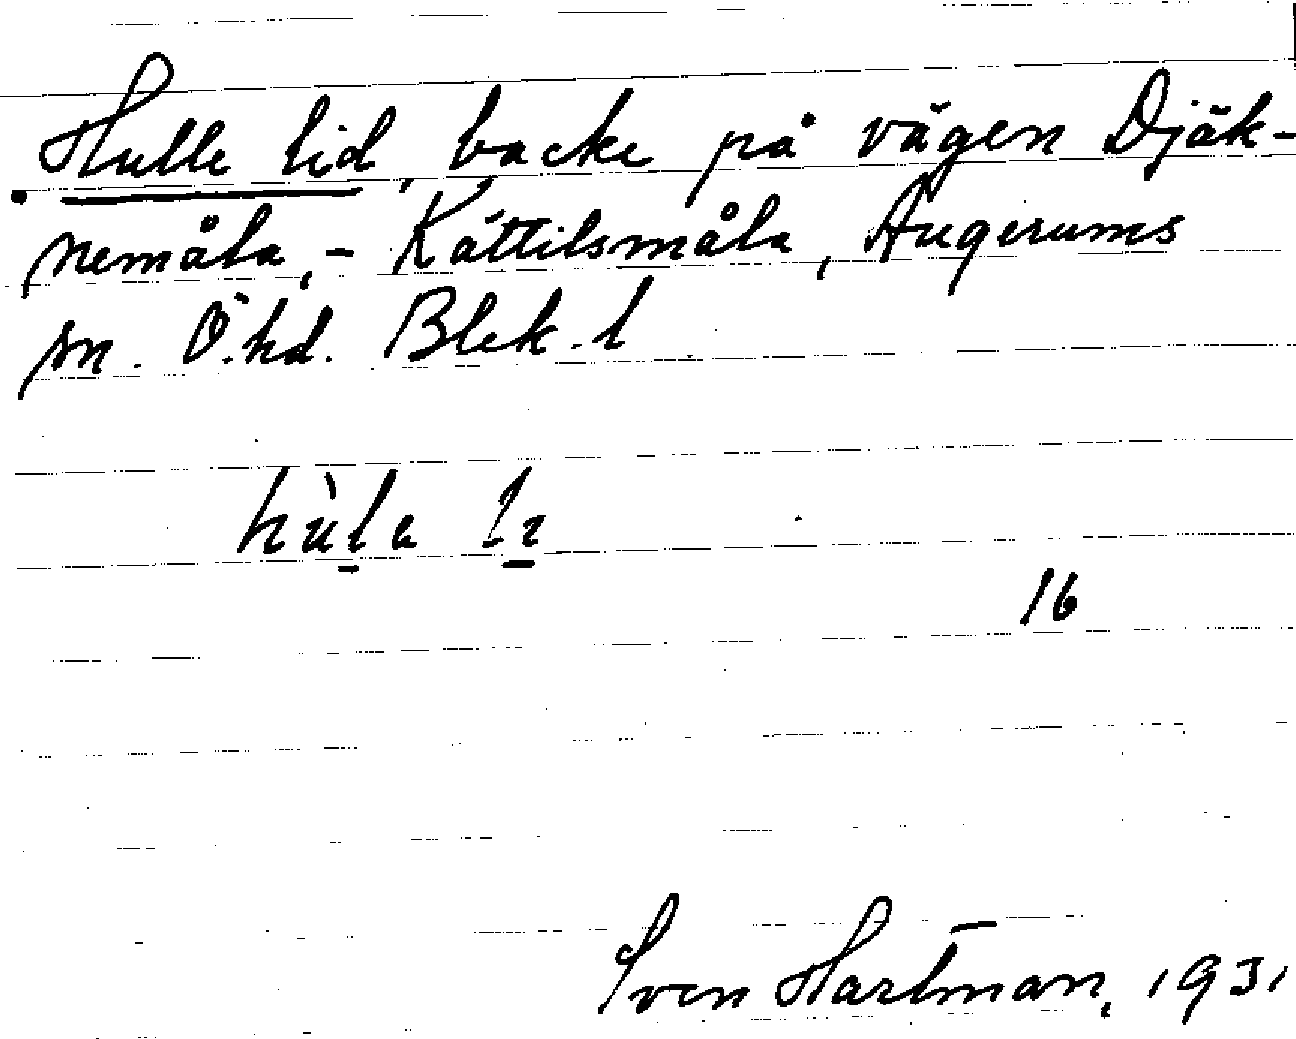 Hulle lid, backe på vägen Djäk-
nemåla, - Kättilsmåla, Augerums
sn. Ö.hd. Blek. l
16
Sven Hartman, 1931